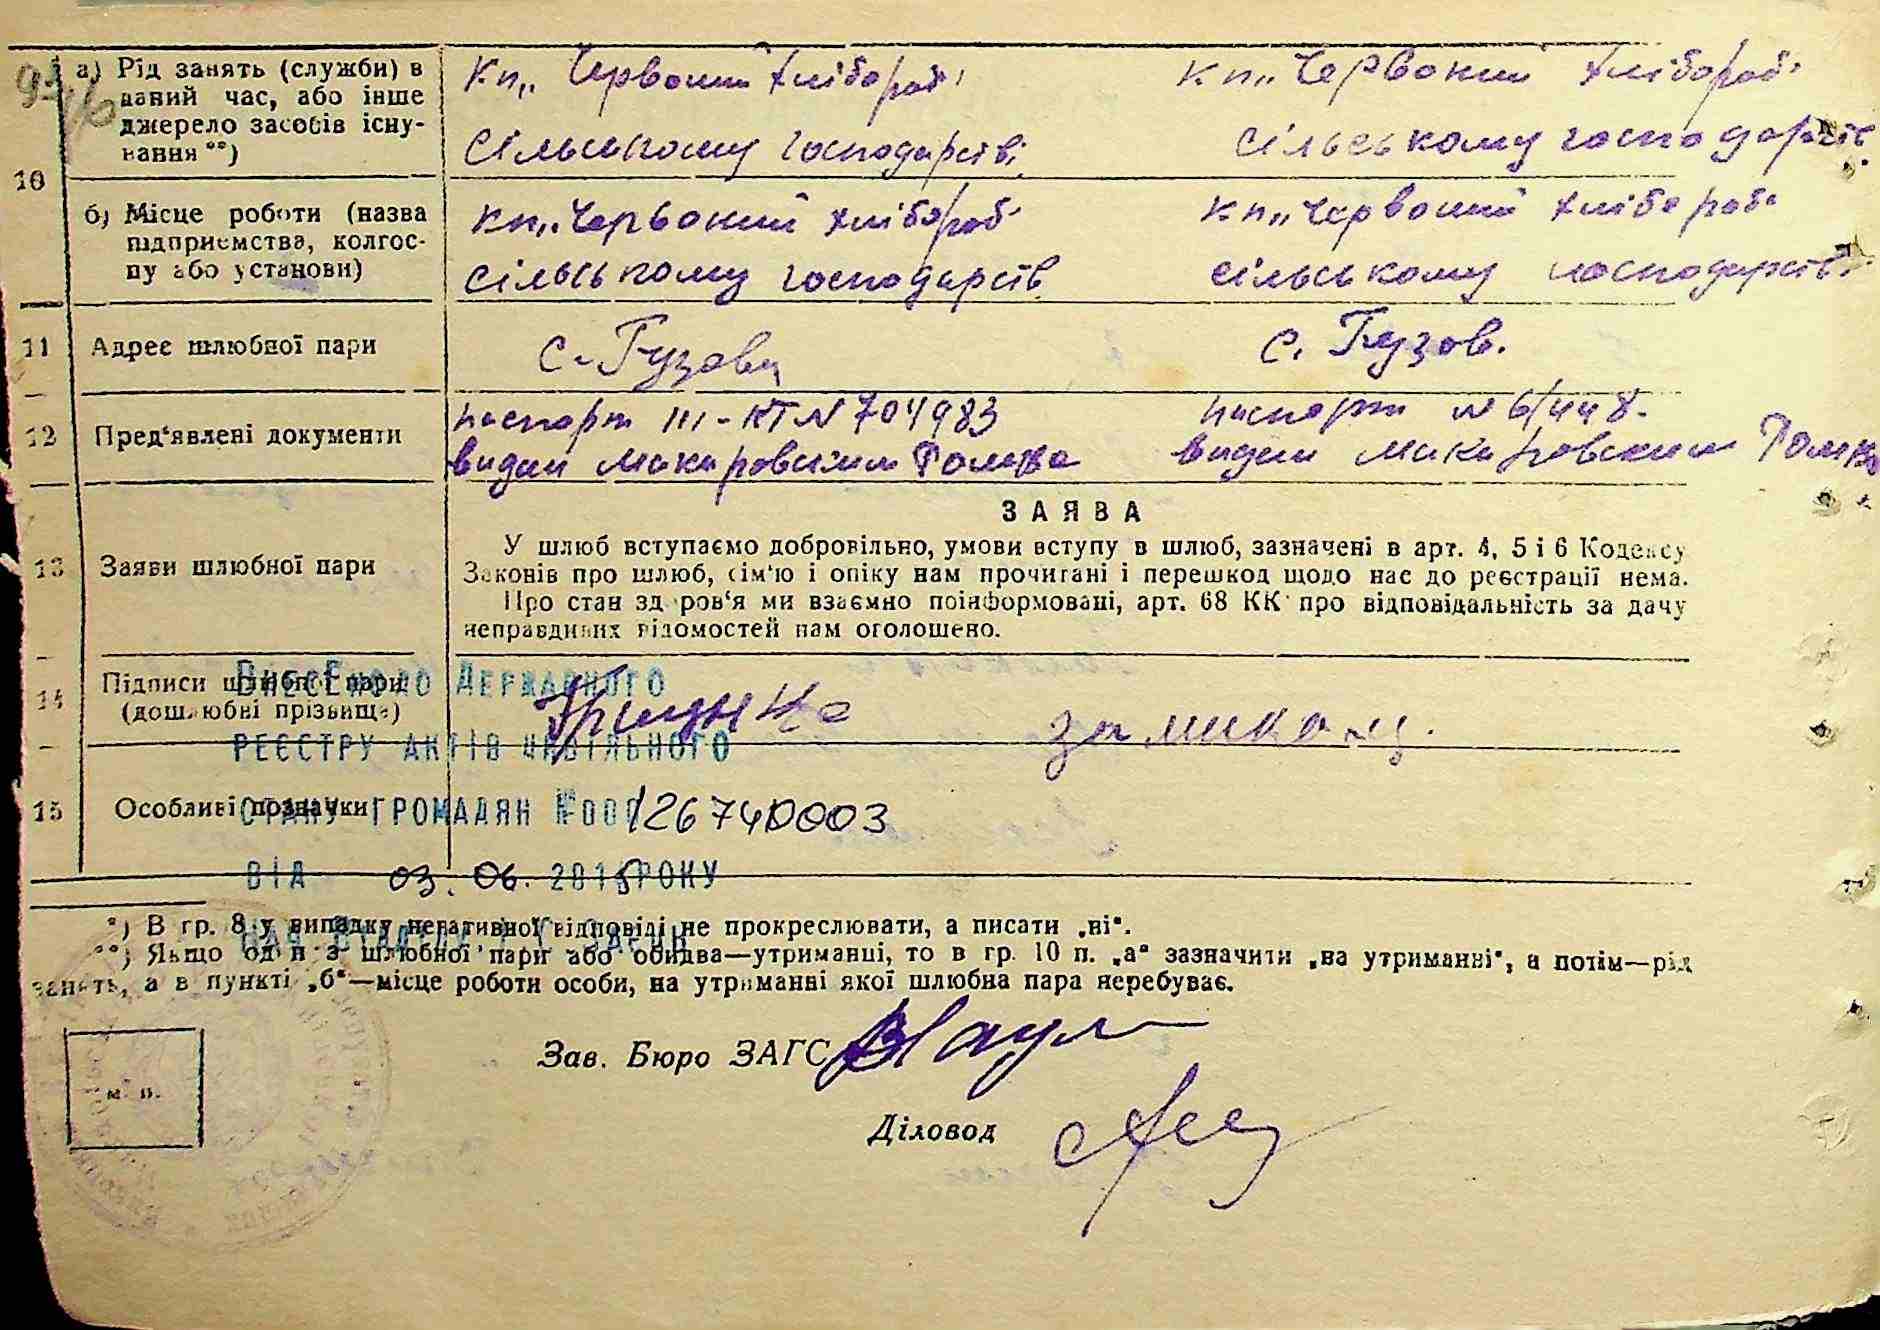 10
а) Рід занять (служби) в даний час, або інше джерело засобів існування **)
Кп „Червоний Хлібороб"
Сільському господарстві
Кп „Червоний Хлібороб"
Сільському господарстві
б) Місце роботи (назва підприємства, колгоспу або установи)
Кп „Червоний Хлібороб"
сільському господарств
Кп „Червоний Хлібороб"
сільському господарстві
11
Адреє шлюбної пари
с. Гузов.
12
Пред'явлені документи
паспорт III-КТ N 704983
видан Макаровским
паспорт N
видан Макаровским
13
Заяви шлюбної пари
ЗАЯВА
У шлюб вступаємо добровільно, умови вступу в шлюб, зазначені в арт. 4, 5 і 6 Кодексу
Законів про шлюб, сім'ю і опіку нам прочитані і перешкод щодо нас до реєстрації нема.
Про стан здоров'я ми взаємно поінформовані, арт. 68 КК про відповідальність за дачу
неправдивих відомостей нам оголошено.
14
Підписи шлюбної пари
(дошлюбні прізвища)
15
Особливі позначки
Внесено до Державного
реєстру актів цивільного
стану громадян №00012674
від 03. 06. 2015 року
*) В гр. 8 у випадку негативної відповіді не прокреслювати, а писати „ні".
**) Якщо один з шлюбної пари або обидва—утриманці, то в гр. 10 п. „а" зазначити „на утриманні", а потім—рід
занять, а в пункті „б"—місце роботи особи, на утриманні якої шлюбна пара перебуває.
м. п.
Зав. Бюро ЗАГС
Діловод